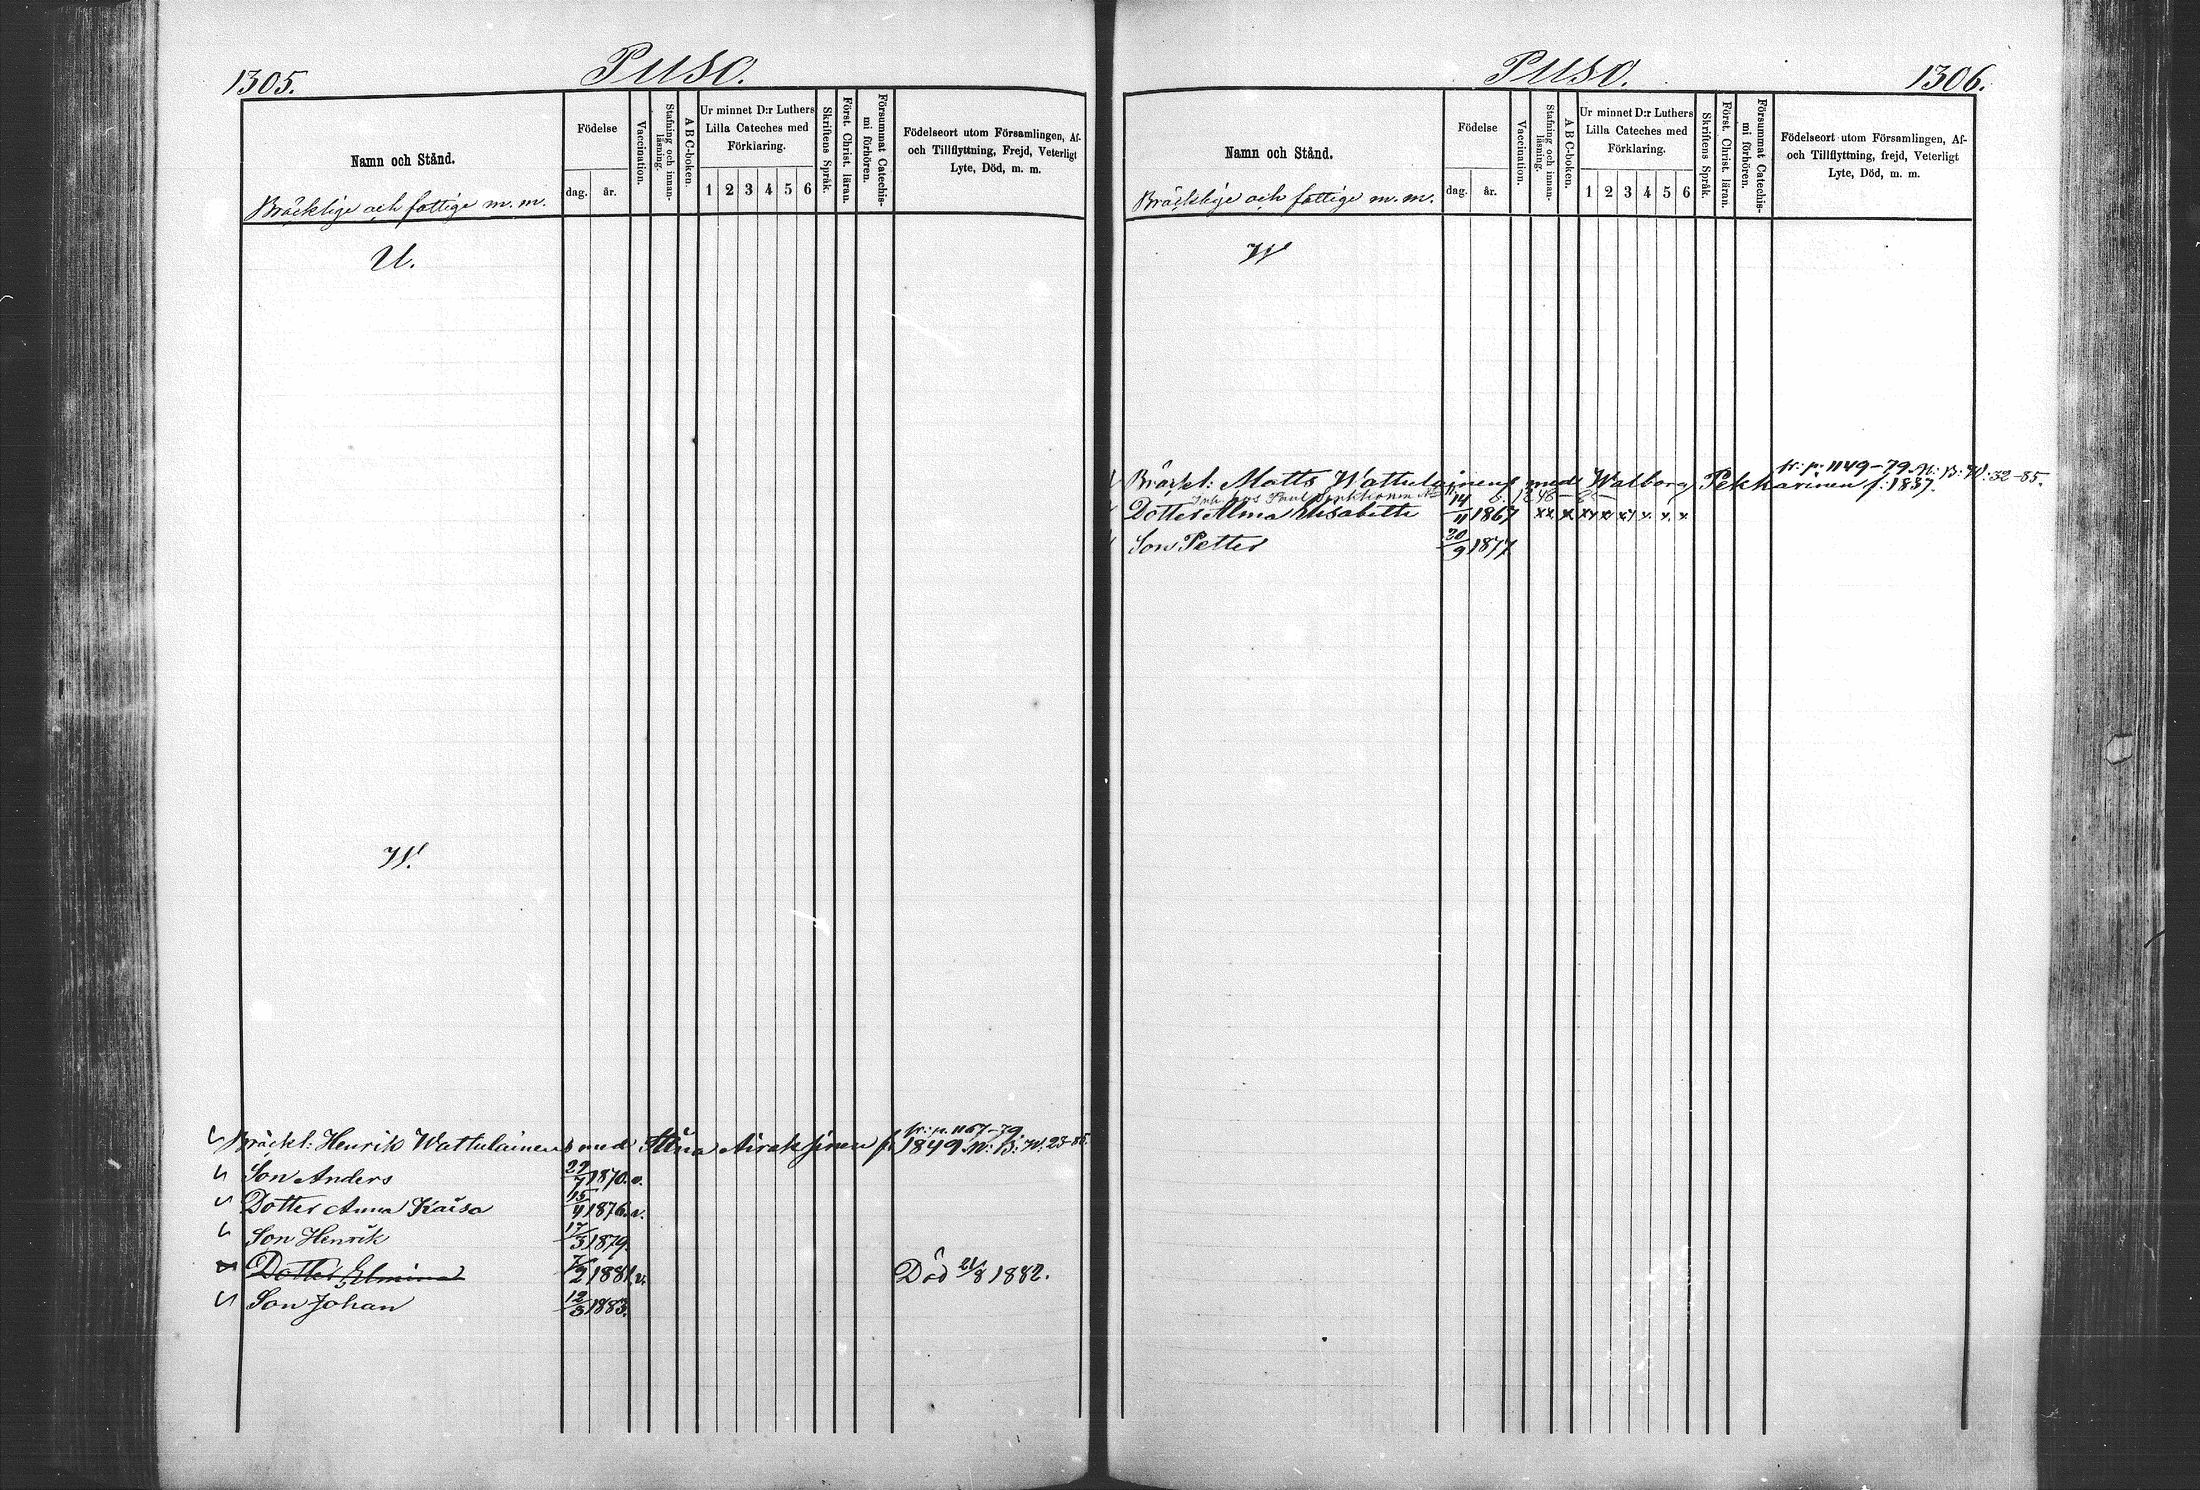 1305.
Puso.
Namn och Stånd.
Bräcklige och fattige m. m.
Födelse
dag.
år.
Vaccination.
Stafning och innan-
läsning.
A B C-boken.
Ur minnet D:r Luthers
Lilla Cateches med
Förklaring.
1 2 3 4 5 6
Skriftens Språk.
Först. Christ. läran.
Försummat Catechis-
mi förhören.
Födelseort utom Församlingen, Af-
och Tillflyttning, Frejd, Veterligt
Lyte, Död, m. m.
U.
W.
fr: p. 1167-79
Bräckl: Henrik Wattulainens med Stina Airaksinen f. 1849. N: B: W. 23-85.
Son Anders 29/7 1870. v.
Dotter Anna Kaisa 15/4 1876. v.
Son Henrik 17/3 1879.
Dotter Elmina 7/2 1881. v. Död 21/8 1882.
Son Johan 12/3 1883.
Puso.
1306.
Namn och Stånd.
Bräcklige och fattige m. m.
Födelse
dag.
år.
Vaccination.
Stafning och innan-
läsning.
A B C-boken.
Ur minnet D:r Luthers
Lilla Cateches med
Förklaring.
1 2 3 4 5 6
Skriftens Språk.
Först. Christ. läran.
Försummat Catechis-
mi förhören.
Födelseort utom Församlingen, Af-
och Tillflyttning, frejd, Veterligt
Lyte, Död, m. m.
W
fr: p: 1149-79. N: B: W: 32-85.
Bräckl: Matts Wattulainens med Walborg Pekkarinen f. 1837.
Paul
Dotter Alma Elisabeth 14/11 1867 xx x xx x x x. x. x
Son Petter 30/9 1877